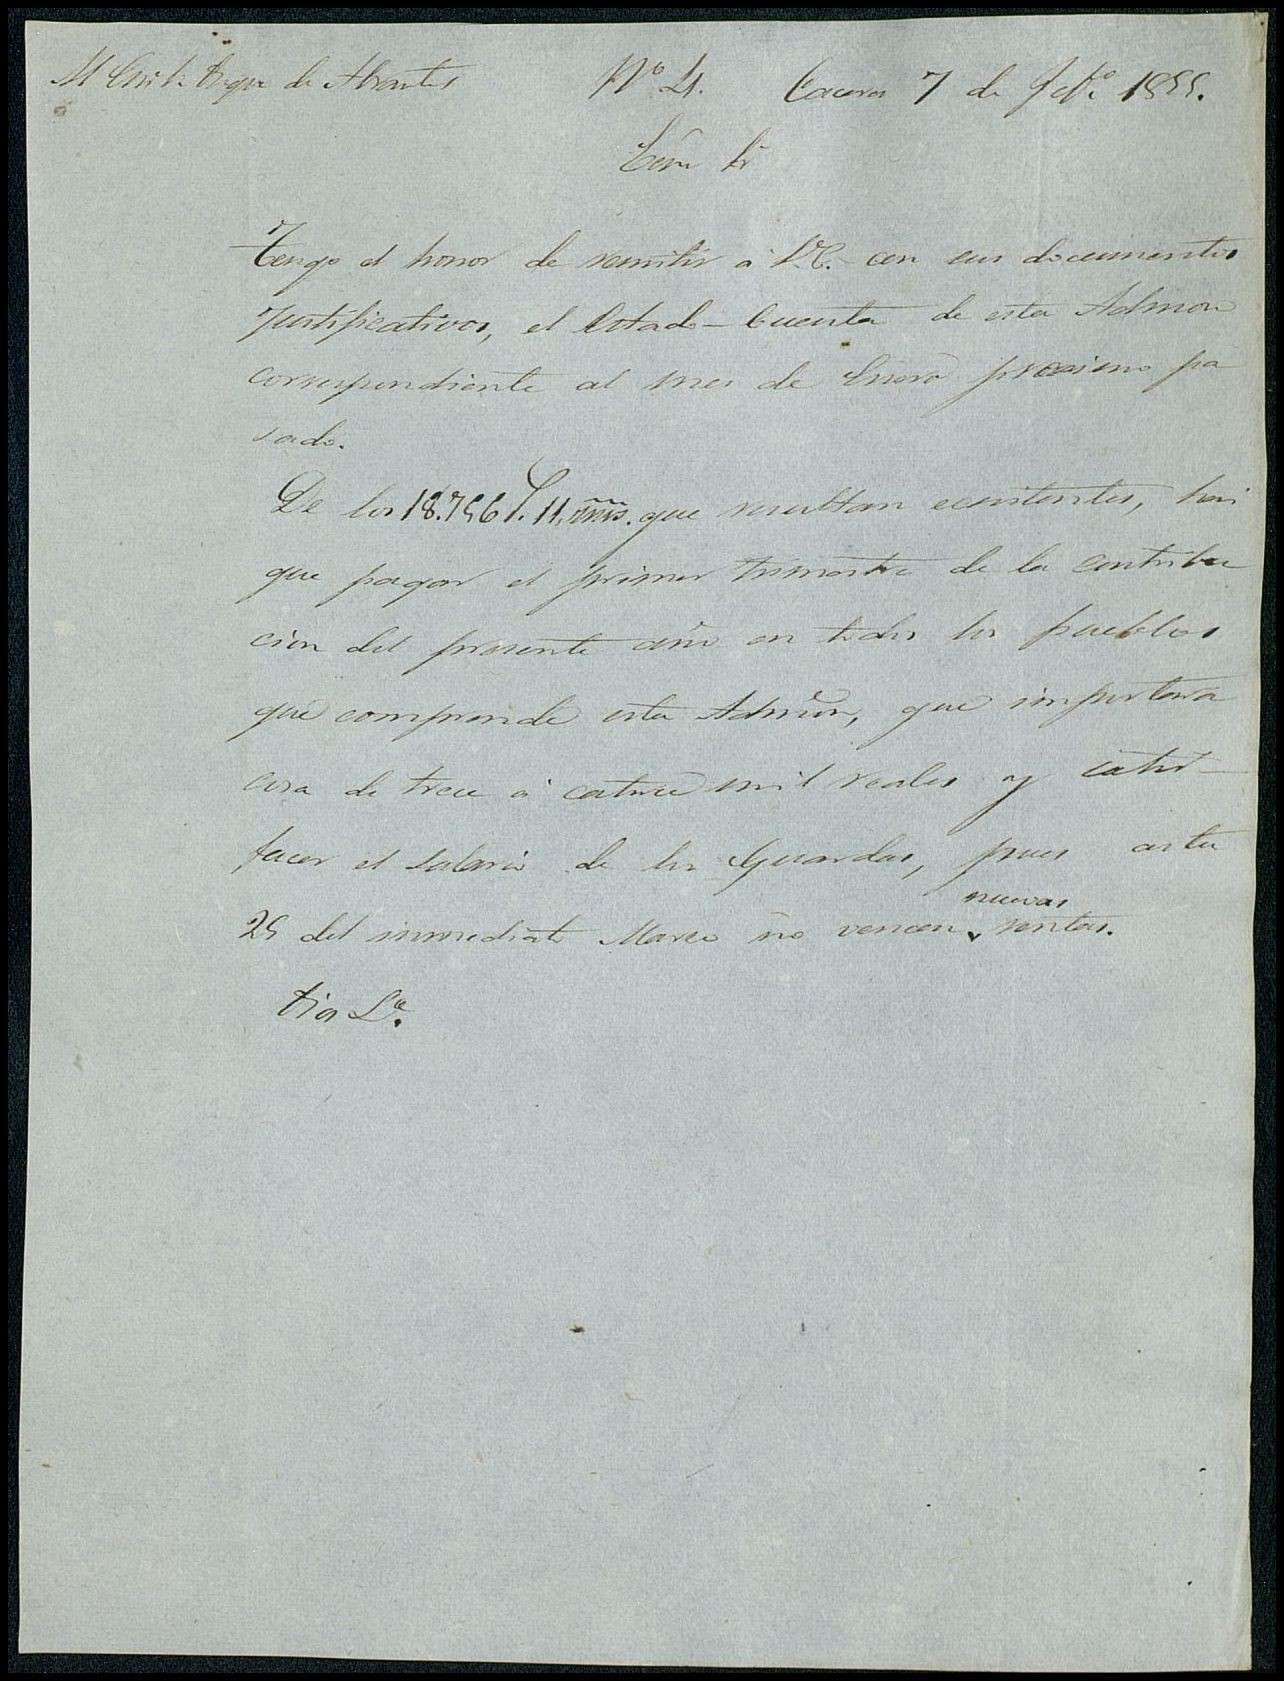 Al Exmo Sr Duque de Abrantes Nº 4. Caceres 7 de Febº 1855.
Exmo Sr
Tengo el honor de remitir a V.E. con sus documentos
justificativos, el Estado-Cuenta de esta Admon
correspondiente al mes de Enero procsimo pa
sado.
De los 18.756 11 mrs. que resultan ecsistentes, hai
que pagar el primer trimestre de la contribu
cion del presente año en todos los pueblos
que comprende esta Admon, que importara
cerca de trece á catorce mil reales y satis-
facer el salario de los Guardas, pues asta
25 del inmediato Marzo no vencen nuevas rentas.
Dios &ª.